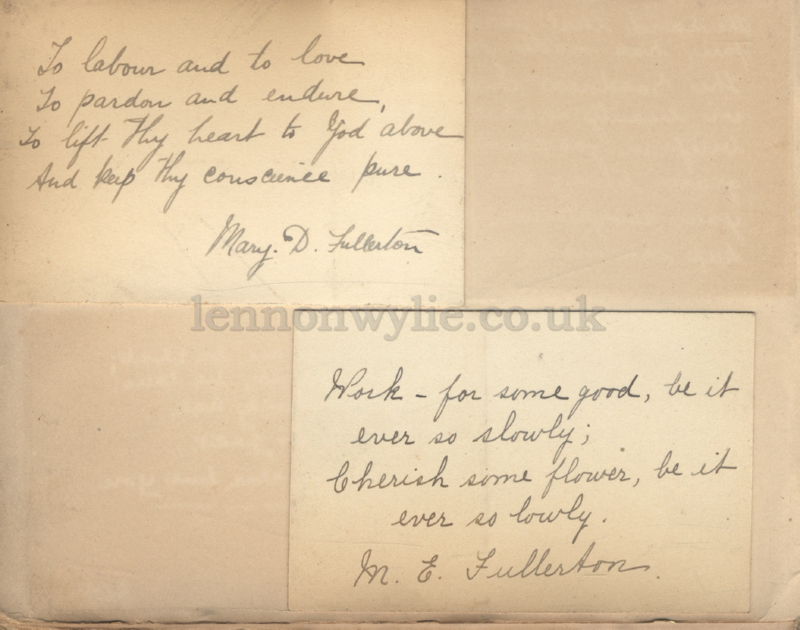 To labour and to love
To pardon and endure,
To lift thy heart to God above
And keep thy conscience pure.
Mary. D. Fullerton
lennonwylie.co.uk
Work - for some good, be it
ever so slowly;
Cherish some flower, be it
ever so lowly.
M. E. Fullerton.